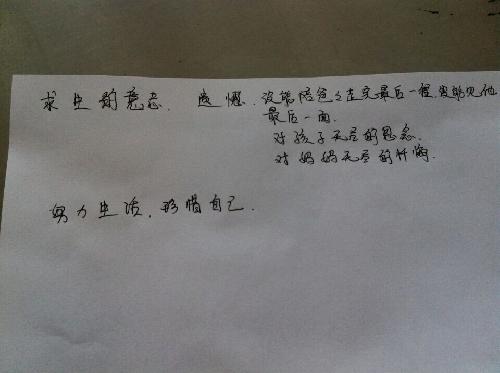 求生的意志. 遗憾. 没能陪爸爸走完最后一程,没能见他
最后一面.
对孩子无尽的思念.
对妈妈无尽的忏悔.
努力生活,珍惜自己.